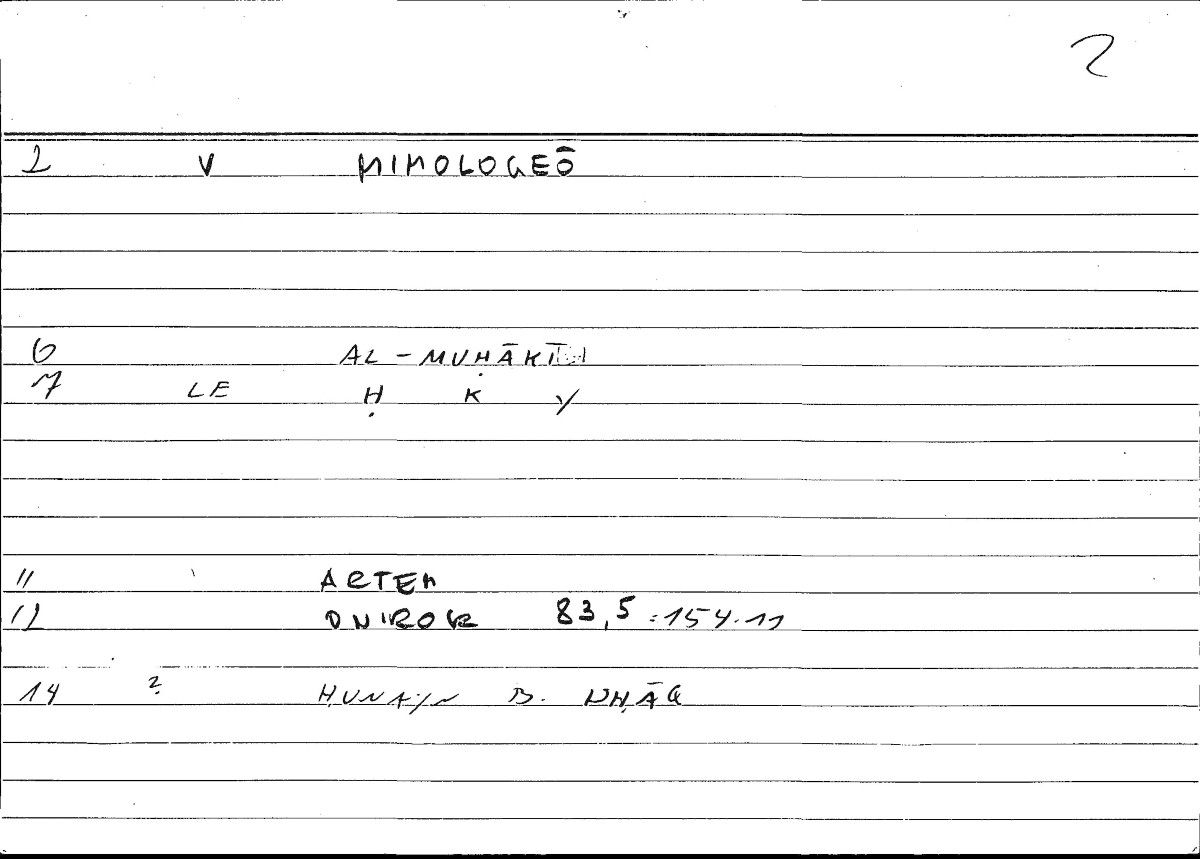 2
2 V MIMOLOGEŌ
6 AL-MUḤĀKĪ
7 LE Ḥ K Y
11 ARTEM
12 ONIROKR 83,5 = 154.11
14 2. ḤUNAYN B. ISḤĀQ